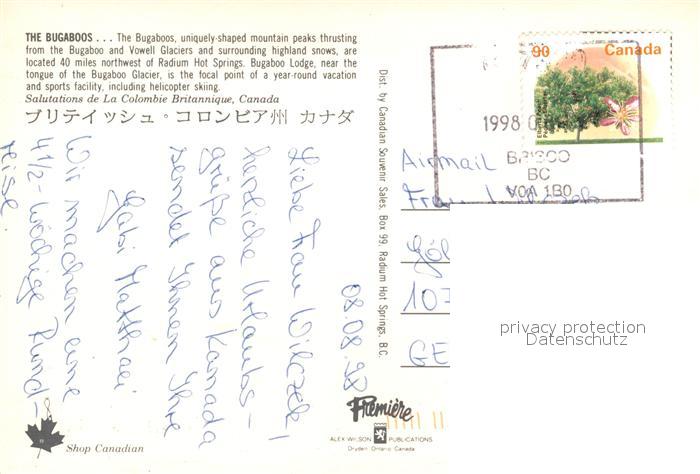 THE BUGABOOS . . . The Bugaboos, uniquely-shaped mountain peaks thrusting
from the Bugaboo and Vowell Glaciers and surrounding highland snows, are
located 40 miles northwest of Radium Hot Springs. Bugaboo Lodge, near the
tongue of the Bugaboo Glacier, is the focal point of a year-round vacation
and sports facility, including helicopter skiing.
Salutations de La Colombie Britannique, Canada
ブリティッシュ・コロンビア州 カナダ
08.08.98
Liebe Frau Wilczek!
herzliche Urlaubs-
grüße aus Kanada
sendet Ihnen Ihre
Gabi Matthaei
Wir machen eine
4 1/2-wöchige Rund-
reise
Shop Canadian
Dist. by Canadian Souvenir Sales, Box 99, Radium Hot Springs, B.C.
90 Canada
1998
BRISCO
BC
V0A 1B0
Airmail
Frau
107
GE
privacy protection
Datenschutz
Première
ALEX WILSON PUBLICATIONS
Dryden Ontario Canada